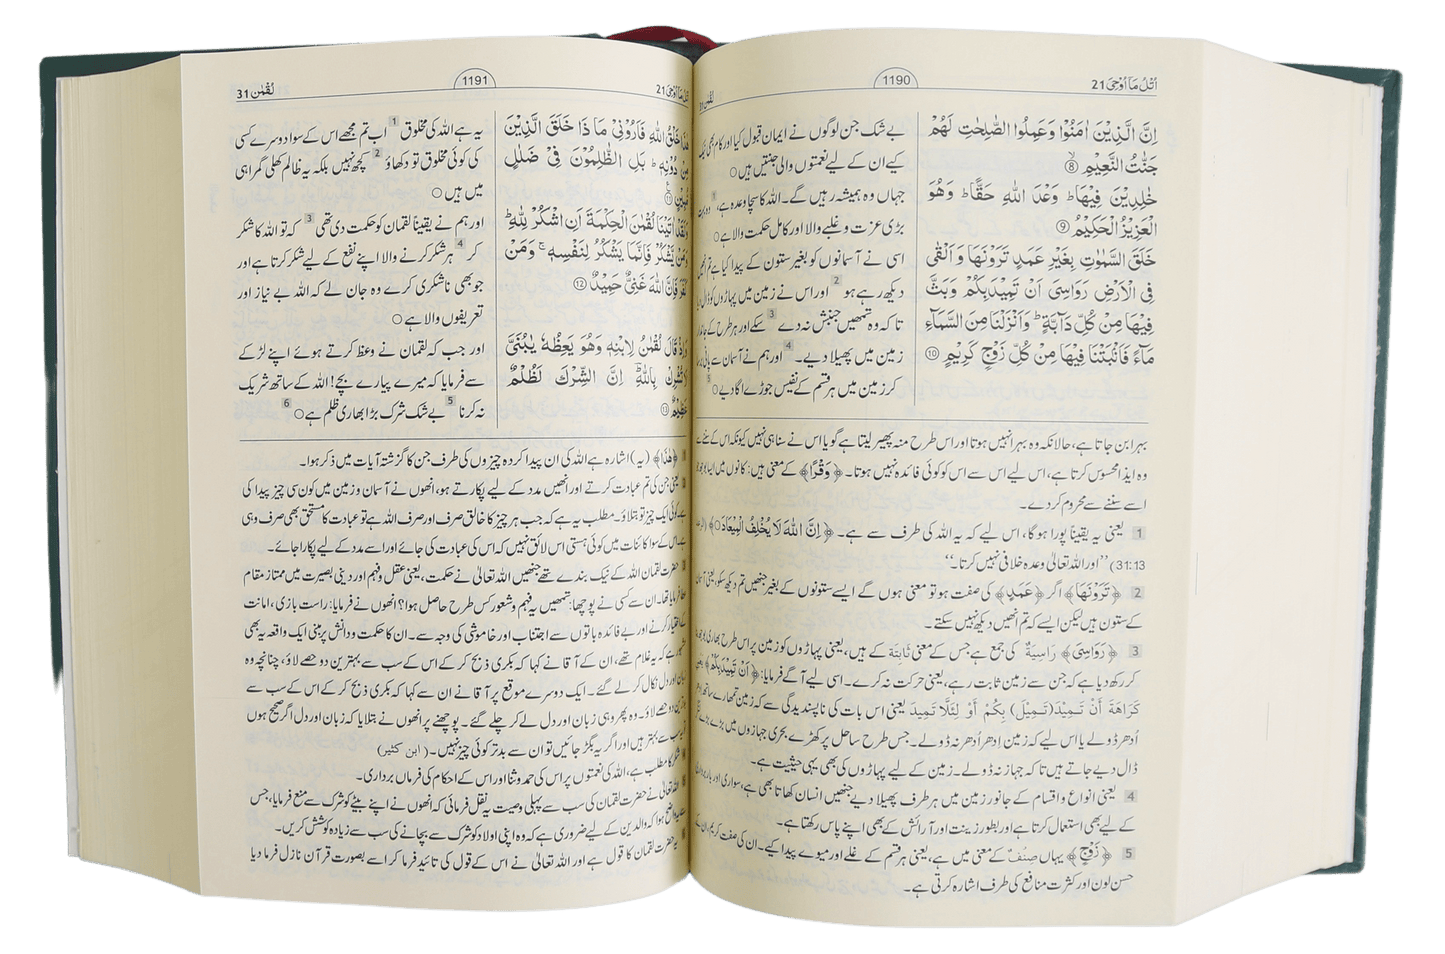 اُتْلُ مَا اُوْحِیَ 21
1190
لُقْمٰن 31
اِنَّ الَّذِیْنَ اٰمَنُوْا وَعَمِلُوا الصّٰلِحٰتِ لَهُمْ
جَنّٰتُ النَّعِیْمِ ۙ ⑧
خٰلِدِیْنَ فِیْهَا ؕ وَعْدَ اللّٰهِ حَقًّا ؕ وَهُوَ
الْعَزِیْزُ الْحَكِیْمُ ⑨
خَلَقَ السَّمٰوٰتِ بِغَیْرِ عَمَدٍ تَرَوْنَهَا وَاَلْقٰی
فِی الْاَرْضِ رَوَاسِیَ اَنْ تَمِیْدَ بِكُمْ وَبَثَّ
فِیْهَا مِنْ كُلِّ دَآبَّةٍ ؕ وَاَنْزَلْنَا مِنَ السَّمَآءِ
مَآءً فَاَنْۢبَتْنَا فِیْهَا مِنْ كُلِّ زَوْجٍ كَرِیْمٍ ⑩
بے شک جن لوگوں نے ایمان قبول کیا اور کام بھی نیک
کیے ان کے لیے نعمتوں والی جنتیں ہیں ○
جہاں وہ ہمیشہ رہیں گے۔ اللہ کا سچا وعدہ ہے، 1 وہ
بڑی عزت و غلبے والا اور کامل حکمت والا ہے ○
اسی نے آسمانوں کو بغیر ستون کے پیدا کیا ہے تم انھیں
دیکھ رہے ہو 2 اور اس نے زمین میں پہاڑوں کو ڈال دیا
تاکہ وہ تمھیں جنبش نہ دے 3 سکے اور ہر طرح کے جاندار
زمین میں پھیلا دیے۔ 4 اور ہم نے آسمان سے پانی برسا
کر زمین میں ہر قسم کے نفیس جوڑے اگا دیے ○ 5
بہرا بن جاتا ہے، حالانکہ وہ بہرا نہیں ہوتا اور اس طرح منہ پھیر لیتا ہے گویا اس نے سنا ہی نہیں کیونکہ اس کے سننے سے
وہ ایذا محسوس کرتا ہے، اس لیے اس سے اس کو کوئی فائدہ نہیں ہوتا۔ ﴿وَقْرًا﴾ کے معنی ہیں: کانوں میں ایسا بوجھ جو
اسے سننے سے محروم کر دے۔
1 یعنی یہ یقیناً پورا ہوگا، اس لیے کہ یہ اللہ کی طرف سے ہے۔ ﴿اِنَّ اللّٰهَ لَا یُخْلِفُ الْمِیْعَادَ ○﴾ (الرعد
31:13) ”اور اللہ تعالیٰ وعدہ خلافی نہیں کرتا۔“
2 ﴿تَرَوْنَهَا﴾ اگر ﴿عَمَدٍ﴾ کی صفت ہو تو معنی ہوں گے ایسے ستونوں کے بغیر جنھیں تم دیکھ سکو، یعنی آسمان
کے ستون ہیں لیکن ایسے کہ تم انھیں دیکھ نہیں سکتے۔
3 ﴿رَوَاسِیَ﴾ رَاسِيَةٌ کی جمع ہے جس کے معنی ثَابِتَة کے ہیں، یعنی پہاڑوں کو زمین پر اس طرح بھاری بوجھ بنا
کر رکھ دیا ہے کہ جن سے زمین ثابت رہے، یعنی حرکت نہ کرے۔ اسی لیے آگے فرمایا: ﴿اَنْ تَمِیْدَ بِكُمْ﴾ یعنی
كَرَاهَةَ أَنْ تَمِيْدَ (تَمِيْلَ) بِكُمْ أَوْ لِئَلَّا تَمِيدَ یعنی اس بات کی ناپسندیدگی سے کہ زمین تمھارے ساتھ ادھر
اُدھر ڈولے یا اس لیے کہ زمین اِدھر اُدھر نہ ڈولے۔ جس طرح ساحل پر کھڑے بحری جہازوں میں بڑے بڑے لنگر
ڈال دیے جاتے ہیں تاکہ جہاز نہ ڈولے۔ زمین کے لیے پہاڑوں کی بھی یہی حیثیت ہے۔
4 یعنی انواع و اقسام کے جانور زمین میں ہر طرف پھیلا دیے جنھیں انسان کھاتا بھی ہے، سواری اور بار برداری
کے لیے بھی استعمال کرتا ہے اور بطور زینت اور آرائش کے بھی اپنے پاس رکھتا ہے۔
5 ﴿زَوْجٍ﴾ یہاں صِنْفٌ کے معنی میں ہے، یعنی ہر قسم کے غلے اور میوے پیدا کیے۔ ان کی صفت کریم، ان کے
حسن لون اور کثرت منافع کی طرف اشارہ کرتی ہے۔
اُتْلُ مَا اُوْحِیَ 21
1191
لُقْمٰن 31
هٰذَا خَلْقُ اللّٰهِ فَاَرُوْنِیْ مَاذَا خَلَقَ الَّذِیْنَ
مِنْ دُوْنِهٖ ؕ بَلِ الظّٰلِمُوْنَ فِیْ ضَلٰلٍ
مُّبِیْنٍ ⑪
وَلَقَدْ اٰتَیْنَا لُقْمٰنَ الْحِكْمَةَ اَنِ اشْكُرْ لِلّٰهِ ؕ
وَمَنْ یَّشْكُرْ فَاِنَّمَا یَشْكُرُ لِنَفْسِهٖ ۚ وَمَنْ
كَفَرَ فَاِنَّ اللّٰهَ غَنِیٌّ حَمِیْدٌ ⑫
وَاِذْ قَالَ لُقْمٰنُ لِابْنِهٖ وَهُوَ یَعِظُهٗ یٰبُنَیَّ
لَا تُشْرِكْ بِاللّٰهِ ؔؕ اِنَّ الشِّرْكَ لَظُلْمٌ
عَظِیْمٌ ⑬
یہ ہے اللہ کی مخلوق 1 اب تم مجھے اس کے سوا دوسرے کسی
کی کوئی مخلوق تو دکھاؤ 2 کچھ نہیں بلکہ یہ ظالم کھلی گمراہی
میں ہیں ○
اور ہم نے یقیناً لقمان کو حکمت دی تھی 3 کہ تو اللہ کا شکر
کر 4 ہر شکر کرنے والا اپنے نفع کے لیے شکر کرتا ہے اور
جو بھی ناشکری کرے وہ جان لے کہ اللہ بے نیاز اور
تعریفوں والا ہے ○
اور جب کہ لقمان نے وعظ کرتے ہوئے اپنے لڑکے
سے فرمایا کہ میرے پیارے بچے! اللہ کے ساتھ شریک
نہ کرنا 5 بے شک شرک بڑا بھاری ظلم ہے ○ 6
﴿هٰذَا﴾ (یہ) اشارہ ہے اللہ کی ان پیدا کردہ چیزوں کی طرف جن کا گزشتہ آیات میں ذکر ہوا۔
یعنی جن کی تم عبادت کرتے اور انھیں مدد کے لیے پکارتے ہو، انھوں نے آسمان و زمین میں کون سی چیز پیدا کی
ہے؟ کوئی ایک چیز تو بتلاؤ۔ مطلب یہ ہے کہ جب ہر چیز کا خالق صرف اور صرف اللہ ہے تو عبادت کا مستحق بھی صرف وہی
ہے۔ اس کے سوا کائنات میں کوئی ہستی اس لائق نہیں کہ اس کی عبادت کی جائے اور اسے مدد کے لیے پکارا جائے۔
حضرت لقمان اللہ کے نیک بندے تھے جنھیں اللہ تعالیٰ نے حکمت، یعنی عقل و فہم اور دینی بصیرت میں ممتاز مقام
عطا فرمایا تھا۔ ان سے کسی نے پوچھا: تمھیں یہ فہم و شعور کس طرح حاصل ہوا؟ انھوں نے فرمایا: راست بازی، امانت
اختیار کرنے اور بے فائدہ باتوں سے اجتناب اور خاموشی کی وجہ سے۔ ان کا حکمت و دانش پر مبنی ایک واقعہ یہ بھی
مشہور ہے کہ یہ غلام تھے، ان کے آقا نے کہا کہ بکری ذبح کر کے اس کے سب سے بہترین دو حصے لاؤ، چنانچہ وہ
زبان اور دل نکال کر لے گئے۔ ایک دوسرے موقع پر آقا نے ان سے کہا کہ بکری ذبح کر کے اس کے سب سے
بدترین دو حصے لاؤ۔ وہ پھر وہی زبان اور دل لے کر چلے گئے۔ پوچھنے پر انھوں نے بتلایا کہ زبان اور دل اگر صحیح ہوں
تو سب سے بہتر ہیں اور اگر یہ بگڑ جائیں تو ان سے بدتر کوئی چیز نہیں۔ (ابن کثیر)
شکر کا مطلب ہے، اللہ کی نعمتوں پر اس کی حمد و ثنا اور اس کے احکام کی فرماں برداری۔
اللہ تعالیٰ نے حضرت لقمان کی سب سے پہلی وصیت یہ نقل فرمائی کہ انھوں نے اپنے بیٹے کو شرک سے منع فرمایا، جس
سے واضح ہوا کہ والدین کے لیے ضروری ہے کہ وہ اپنی اولاد کو شرک سے بچانے کی سب سے زیادہ کوشش کریں۔
یہ حضرت لقمان کا قول ہے اور اللہ تعالیٰ نے اس کے قول کی تائید فرما کر اسے بصورت قرآن نازل فرما دیا